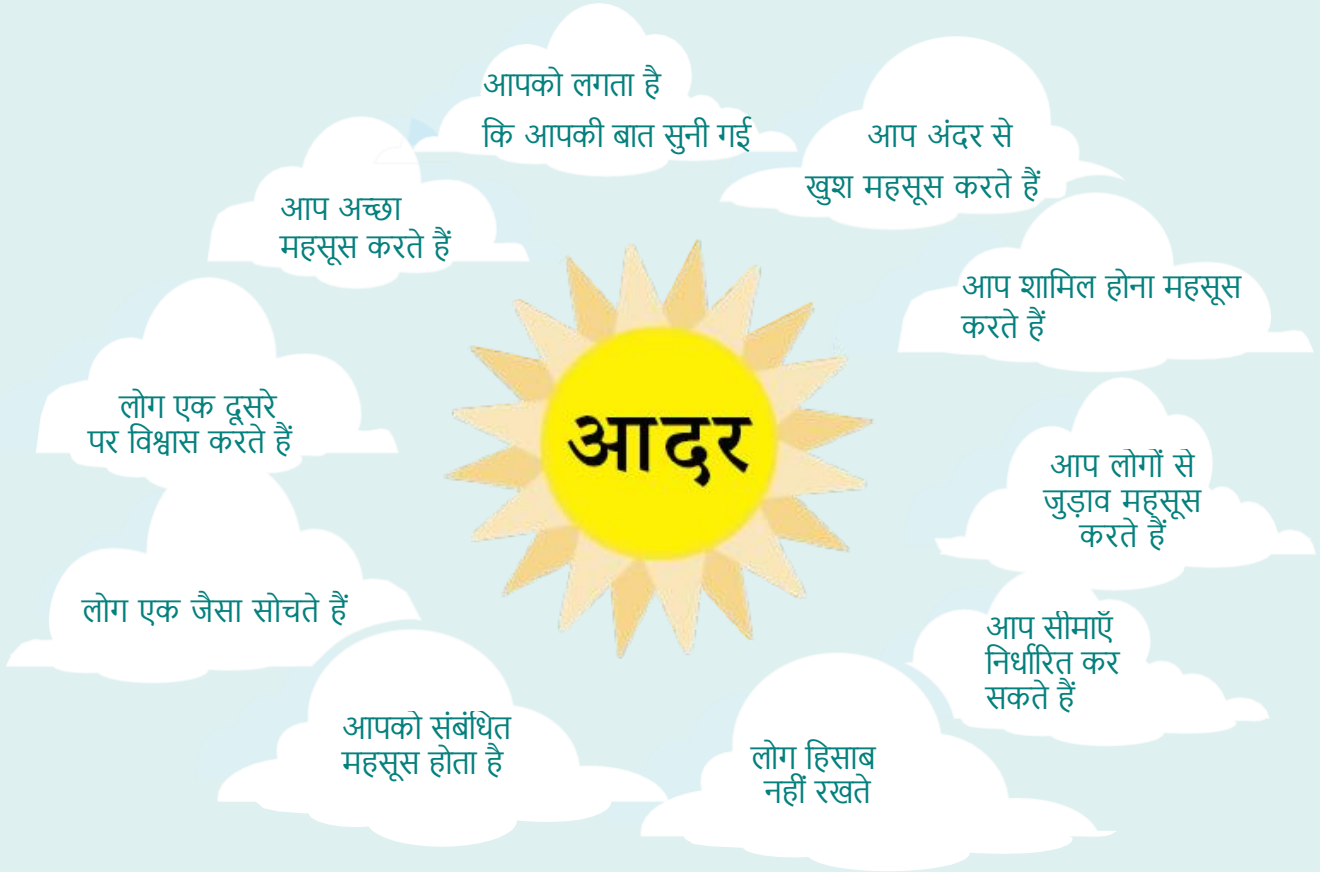 आपको लगता है
कि आपकी बात सुनी गई
आप अंदर से
खुश महसूस करते हैं
आप अच्छा
महसूस करते हैं
आप शामिल होना महसूस
करते हैं
लोग एक दूसरे
पर विश्वास करते हैं
आदर
आप लोगों से
जुड़ाव महसूस
करते हैं
लोग एक जैसा सोचते हैं
आप सीमाएँ
निर्धारित कर
सकते हैं
आपको संबंधित
महसूस होता है
लोग हिसाब
नहीं रखते